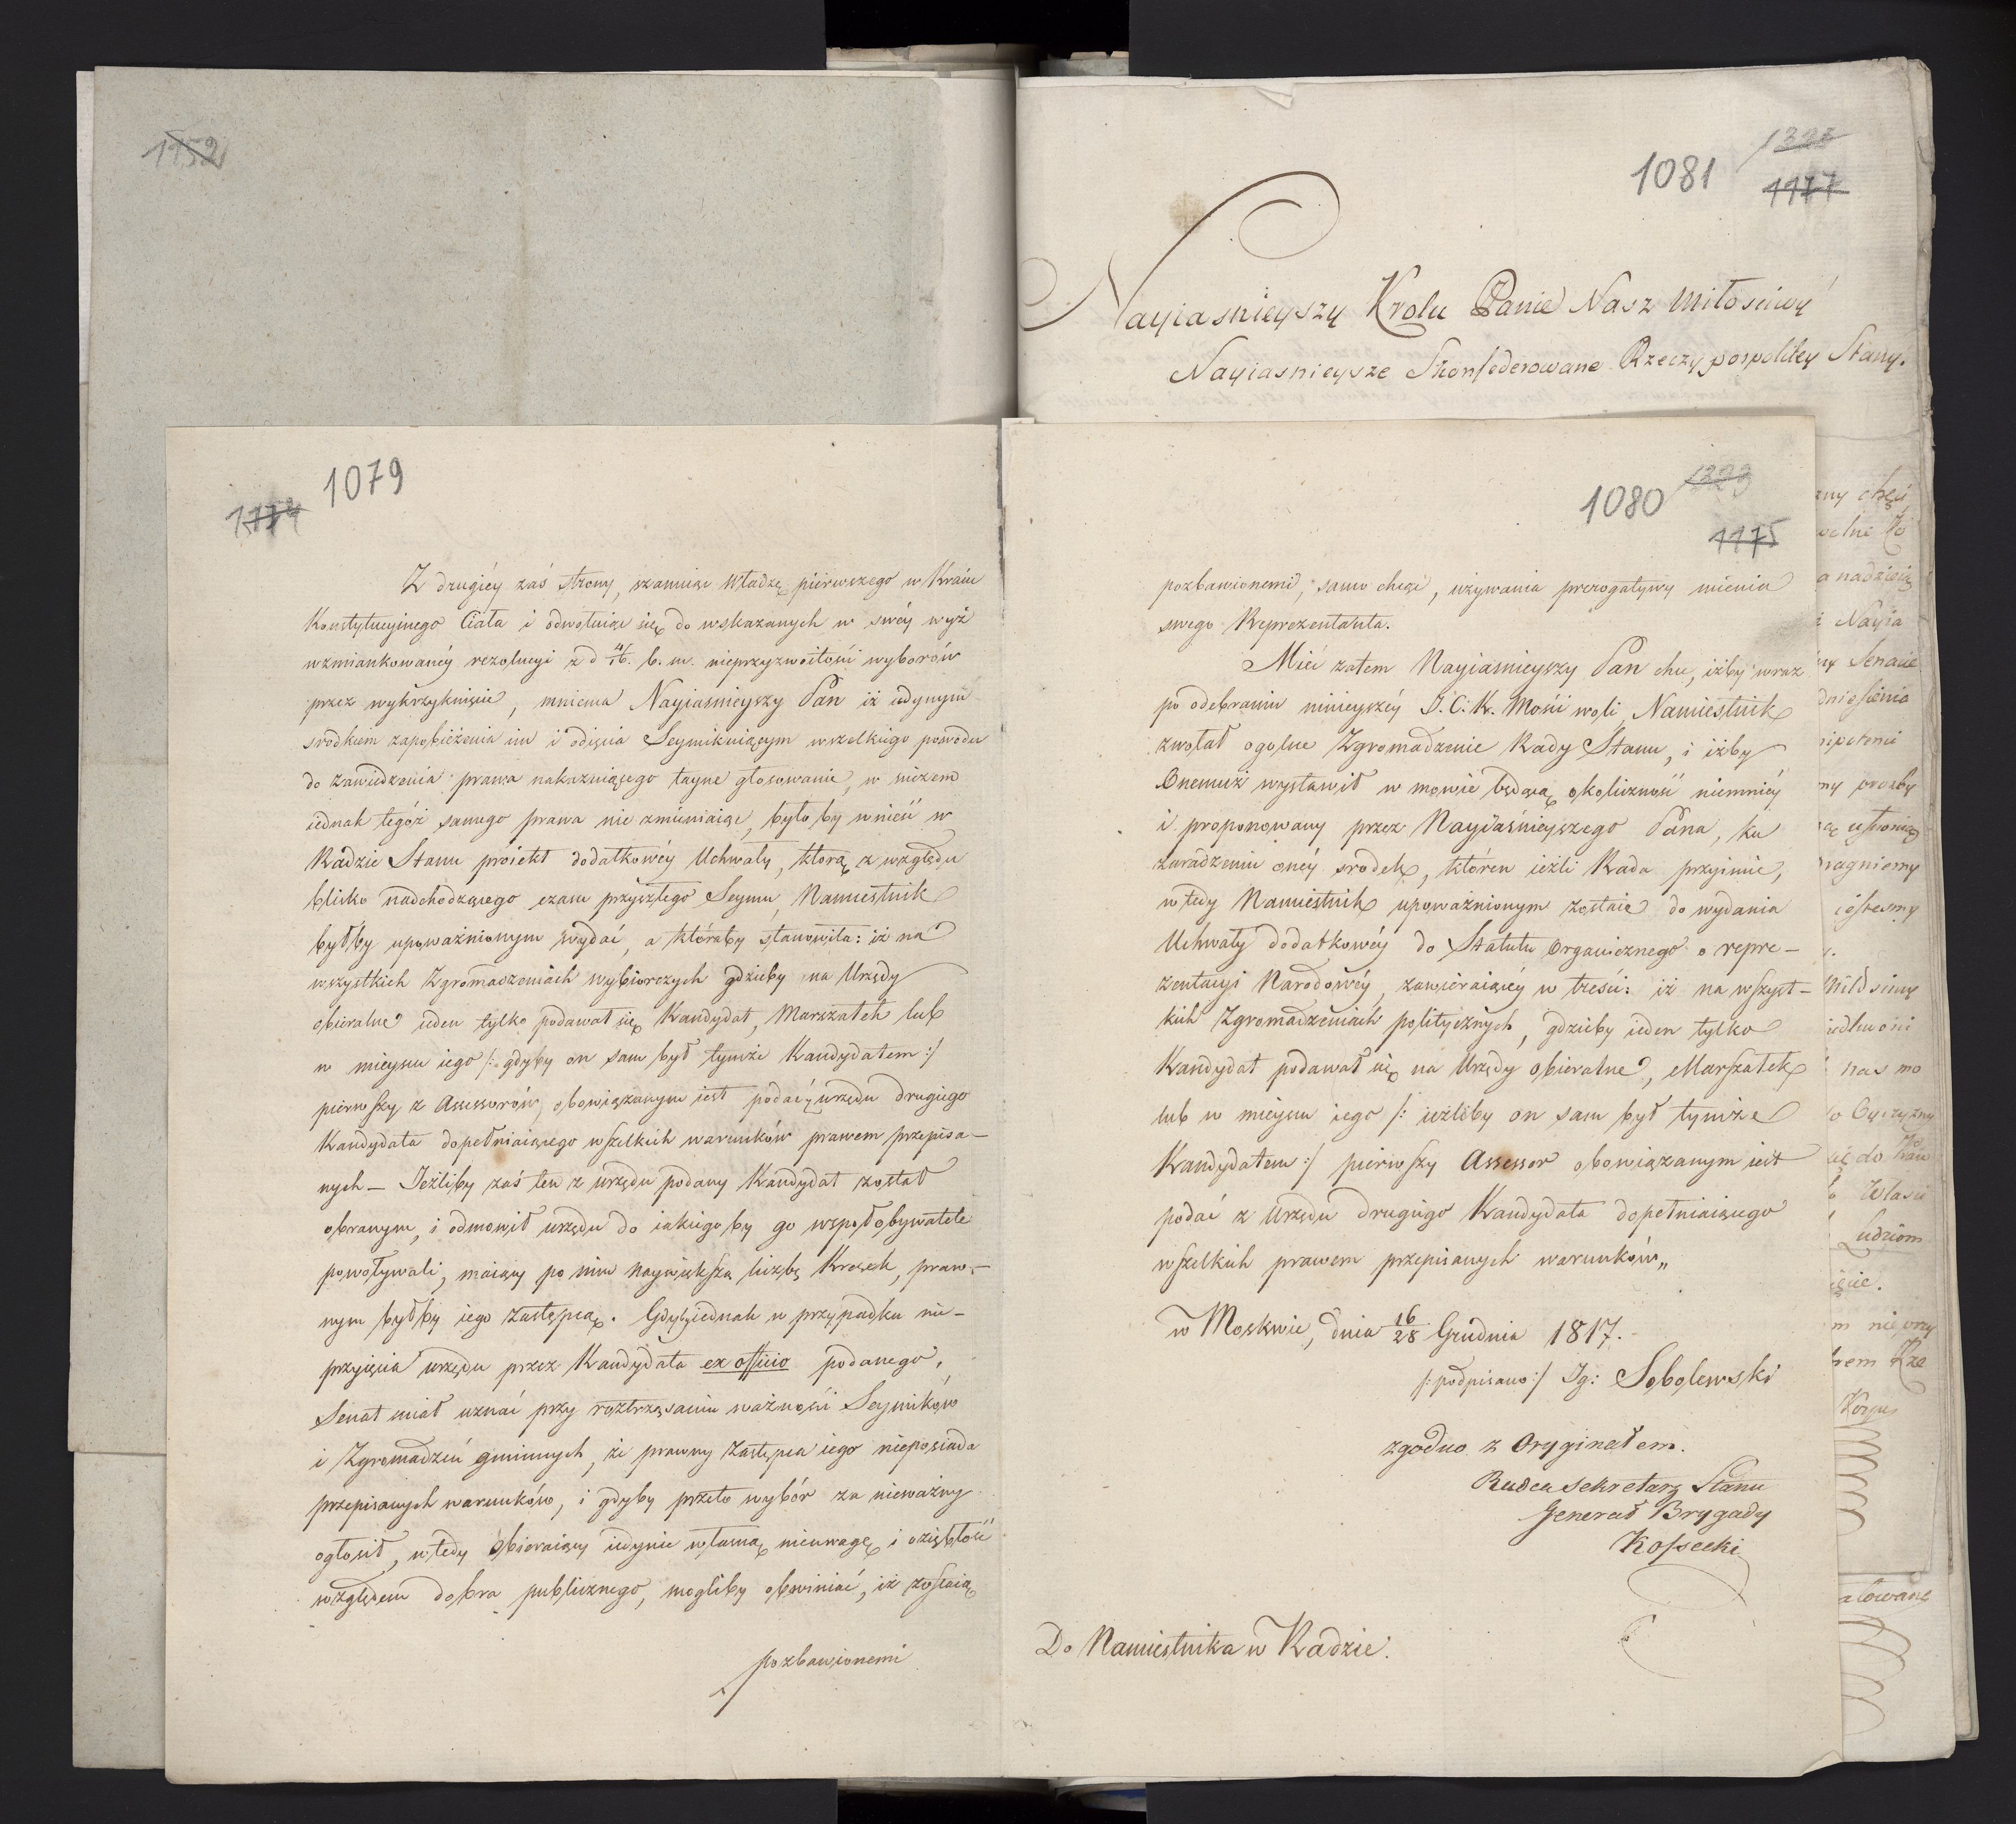 1152
1079
1174
Z drugiéy zaś strony, szanuiąc władzę pierwszego w Kraiu
Konstytucyinego Ciała i odwołuiąc się do wskazanych w swéy wyż
wzmiankowanéy rezolucyi z d 4/16. b. m. nieprzyzwoitości wyborów
przez wykrzyknięcie, mniema Nayiaśnieyszy Pan iż iedynym
srodkiem zapobieżenia im i odięcia Seymikuiącym wszelkiego powodu
do zawiedzenia prawa nakazuiącego tayne głosowanie, w niczem
iednak tegóż samego prawa nie zmieniaiąc, było by wnieść w
Radzie Stanu proiekt dodatkowéy Uchwały, którą z względu
blisko nadchodzącego czasu przyszłego Seymu, Namiestnik
byłby upoważnionym wydać, a któraby stanowiła: iż na
wszystkich Zgromadzeniach wybiorczych gdzieby na Urzędy
obieralne ieden tylko podawał się Kandydat, Marszałek lub
w mieyscu iego /: gdyby on sam był tymże Kandydatem :/
pierwszy z Assessorów, obowiązanym iest podać z urzędu drugiego
Kandydata dopełniaiącego wszelkich warunków prawem przepisa-
nych - Ieżliby zaś ten z urzędu podany Kandydat został
obranym, i odmowił urzędu do iakiego by go wspołobywatele
powoływali, maiący po nim naywiększą liczbę Kresek, praw-
nym byłby iego Zastępcą. Gdyby iednak w przypadku nie-
przyięcia urzędu przez Kandydata ex officio podanego,
Senat miał uznać przy roztrząsaniu ważności Seymików
i Zgromadzeń gminnych, że prawny Zastępca iego nieposiada
przepisanych warunków, i gdyby przeto wybór za nieważny
ogłosił, w tedy Obieraiący iedynie własną nieuwagę i oziębłość
względem dobra publicznego, mogliby obwiniać, iż zostaią
pozbawionemi
1081
1177
Nayiasnieyszy Krolu Panie Nasz Miłosciwy
Nayiasnieysze Skonfederowane Rzeczypospolitey Stany.
1080
1175
pozbawionemi, samo chcąc, używania prerogatywy mienia
swego Reprezentanta.
Mieć zatem Nayiasnieyszy Pan chce, iżby wraz
po odebraniu ninieyszéy J. C. K. Mości woli, Namiestnik
zwołał ogolne Zgromadzenie Rady Stanu, i iżby
Onemuż wystawił w mowie będącą okoliczność niemniéy
i proponowany przez Nayiaśnieyszego Pana, ku
zaradzeniu onéy srodek, któren ieżli Rada przyimie,
w tedy Namiestnik upoważnionym zostaie do wydania
Uchwały dodatkowéy do Statutu Organicznego o repre-
zentacyi Narodowéy, zawieraiącéy w treści: iż na wszyst-
kich Zgromadzeniach politycznych, gdzieby ieden tylko
Kandydat podawał się na Urzędy obieralne, Marszałek
lub w mieyscu iego /: ieżliby on sam był tymże
Kandydatem :/ pierwszy Assessor obowiązanym iest
podać z Urzędu drugiego Kandydata dopełniaiącego
wszelkich prawem przepisanych warunków„
w Moskwie, dnia 16/28 Grudnia 1817.
/: podpisano :/ Ig: Sobolewski
zgodno z Oryginałem.
Radca Sekretarz Stanu
Generał Brygady
Kossecki
Do Namiestnika w Radzie.